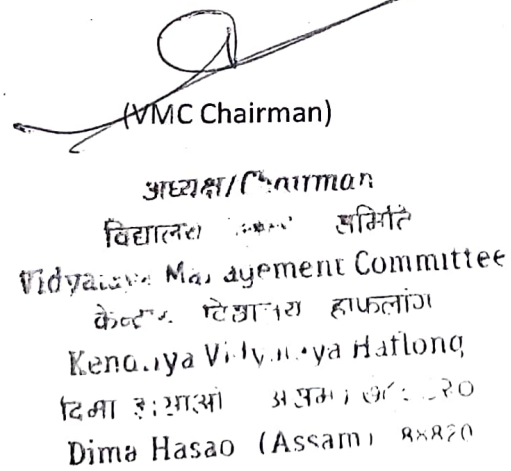 (VMC Chairman)
अध्यक्ष/Chairman
विद्यालय समिति
Vidyalaya Management Committee
केन्द्रीय विद्यालय हाफलांग
Kendriya Vidyalaya Haflong
दिमा हसाओ असम
Dima Hasao (Assam)